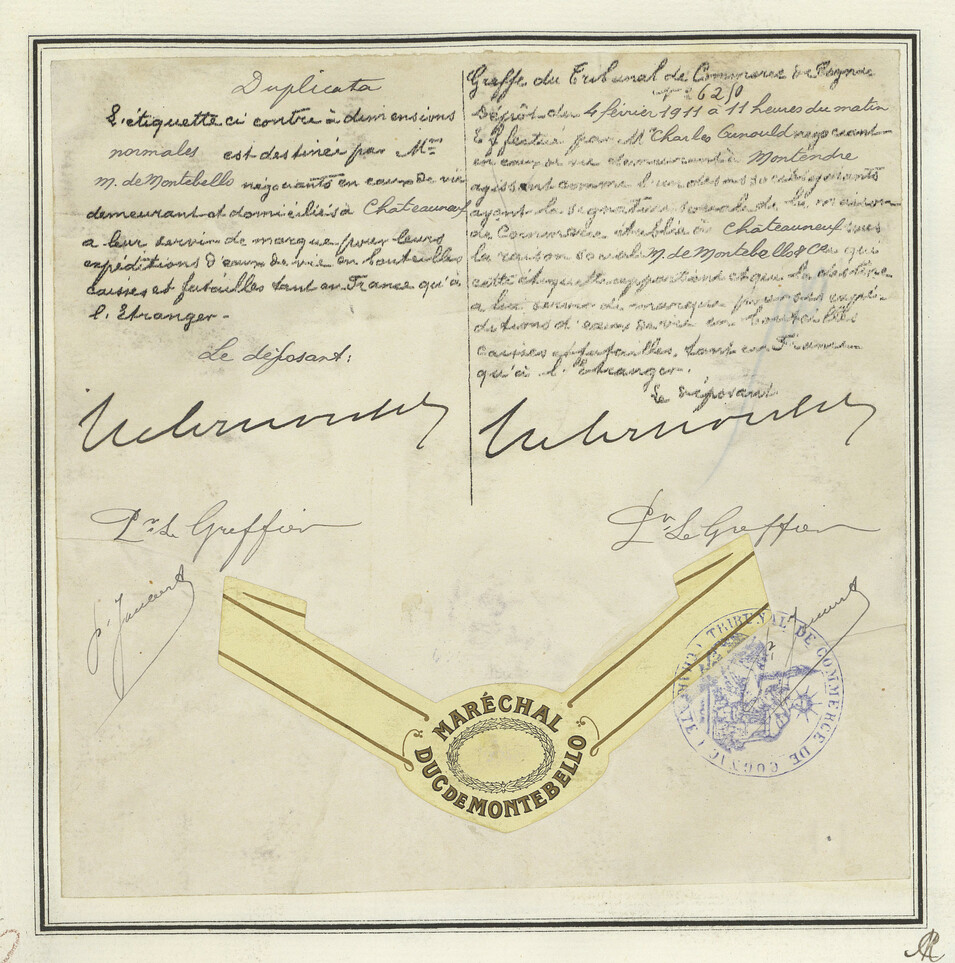 Duplicata
L'étiquette ci contre à dimensions
normales est destinée par Mrs
M. de Montebello négociants en eaux de vie
demeurant et domiciliés à Chateauneuf
a leur servir de marque pour leurs
expéditions d'eaux de vie en bouteilles
caisses et futailles tant en France qu'à
l'Etranger-
Le déposant:
Pr Le Greffier
Greffe du Tribunal de Commerce de Cognac
6250
Dépôt du 4 février 1911 à 11 heures du matin
Effectué par Mr Charles négociant
en eaux de vie demeurant à Montendre
agissant comme l'un des associés gérants
ayant la signature sociale de la maison
de Commerce établie à Châteauneuf sous
la raison sociale M. de Montebello & Ce qui
cette étiquette appartient et qui la destine
a lui servir de marque pour ses expé-
ditions d'eaux de vie en bouteilles
caisses et futailles, tant en France
qu'à l'Etranger.
Le déposant
Pr Le Greffier
MARÉCHAL
DUC DE MONTEBELLO
TRIBUNAL DE COMMERCE DE COGNAC